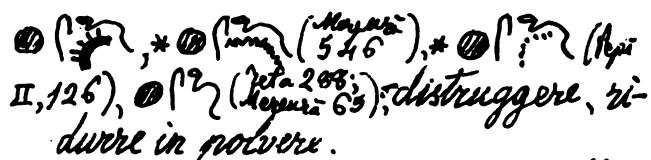 , * (Merenrā 546), * (Pepi
II, 126), (Teta 288; Merenrā 65); distruggere, ri-
durre in polvere.